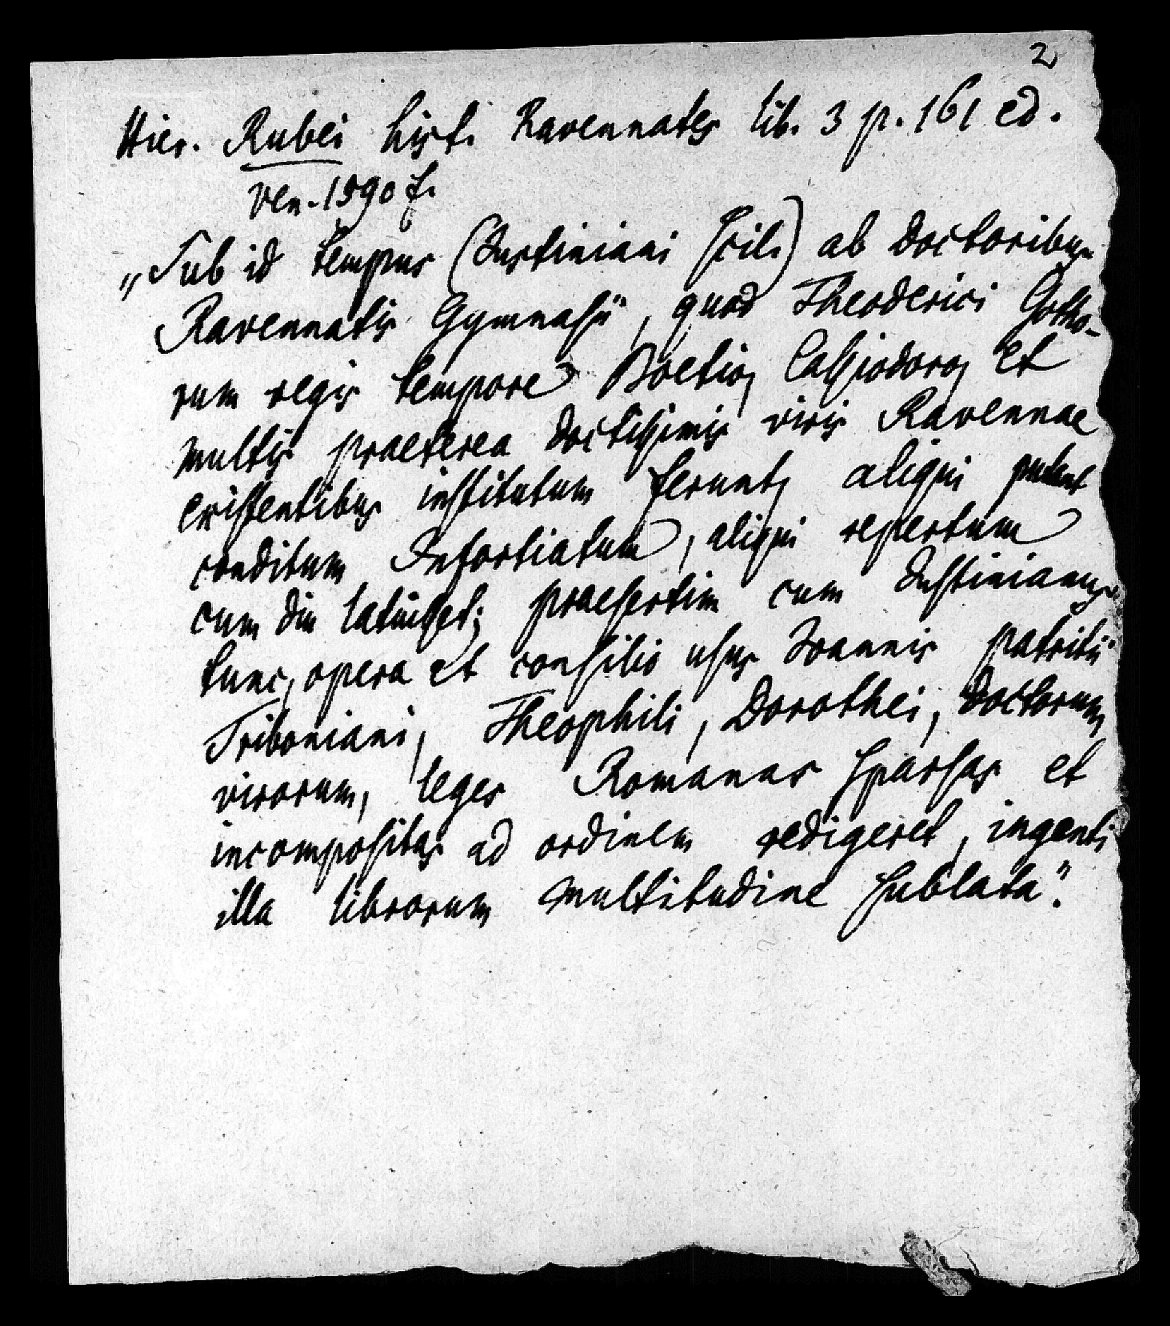 2
Hier. Rubei hist. Ravennates lib. 3 p. 161 ed.
Ven. 1590 f.
„Sub id tempus (Justiniani scil.) ab Doctoribus
Ravennatis Gymnasii, quod Theoderici Gotho-
rum regis tempore Boetio, Cassiodoro, et
multis praeterea doctissimis viris Ravennae
existentibus institutum ferunt, aliqui putant
conditum Infortiatum, aliqui repertum
cum diu latuisset; praesertim cum Justinianus
tunc, opera et consilio usus Joannis patritii
Triboniani, Theophili, Dorothei, doctorum
virorum, leges Romanas sparsas et
incompositas ad ordinem redigeret, ingenti
illa librorum multitudine sublata".